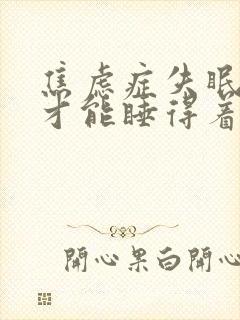 焦虑症失眠
才能睡得着
開心果白開心